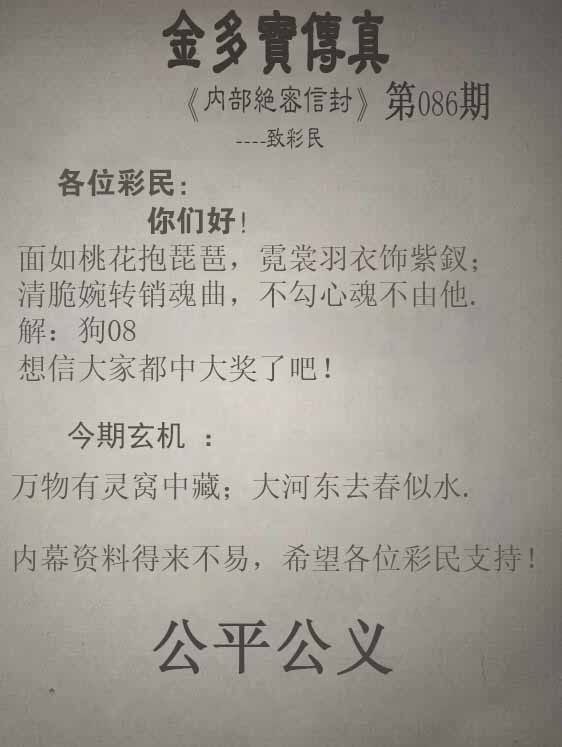 金多寶傳真
《内部絶密信封》第086期
----致彩民
各位彩民:
你们好!
面如桃花抱琵琶，霓裳羽衣饰紫釵；
清脆婉转销魂曲，不勾心魂不由他.
解：狗08
想信大家都中大奖了吧！
今期玄机 ：
万物有灵窝中藏；大河东去春似水.
内幕资料得来不易，希望各位彩民支持！
公平公义